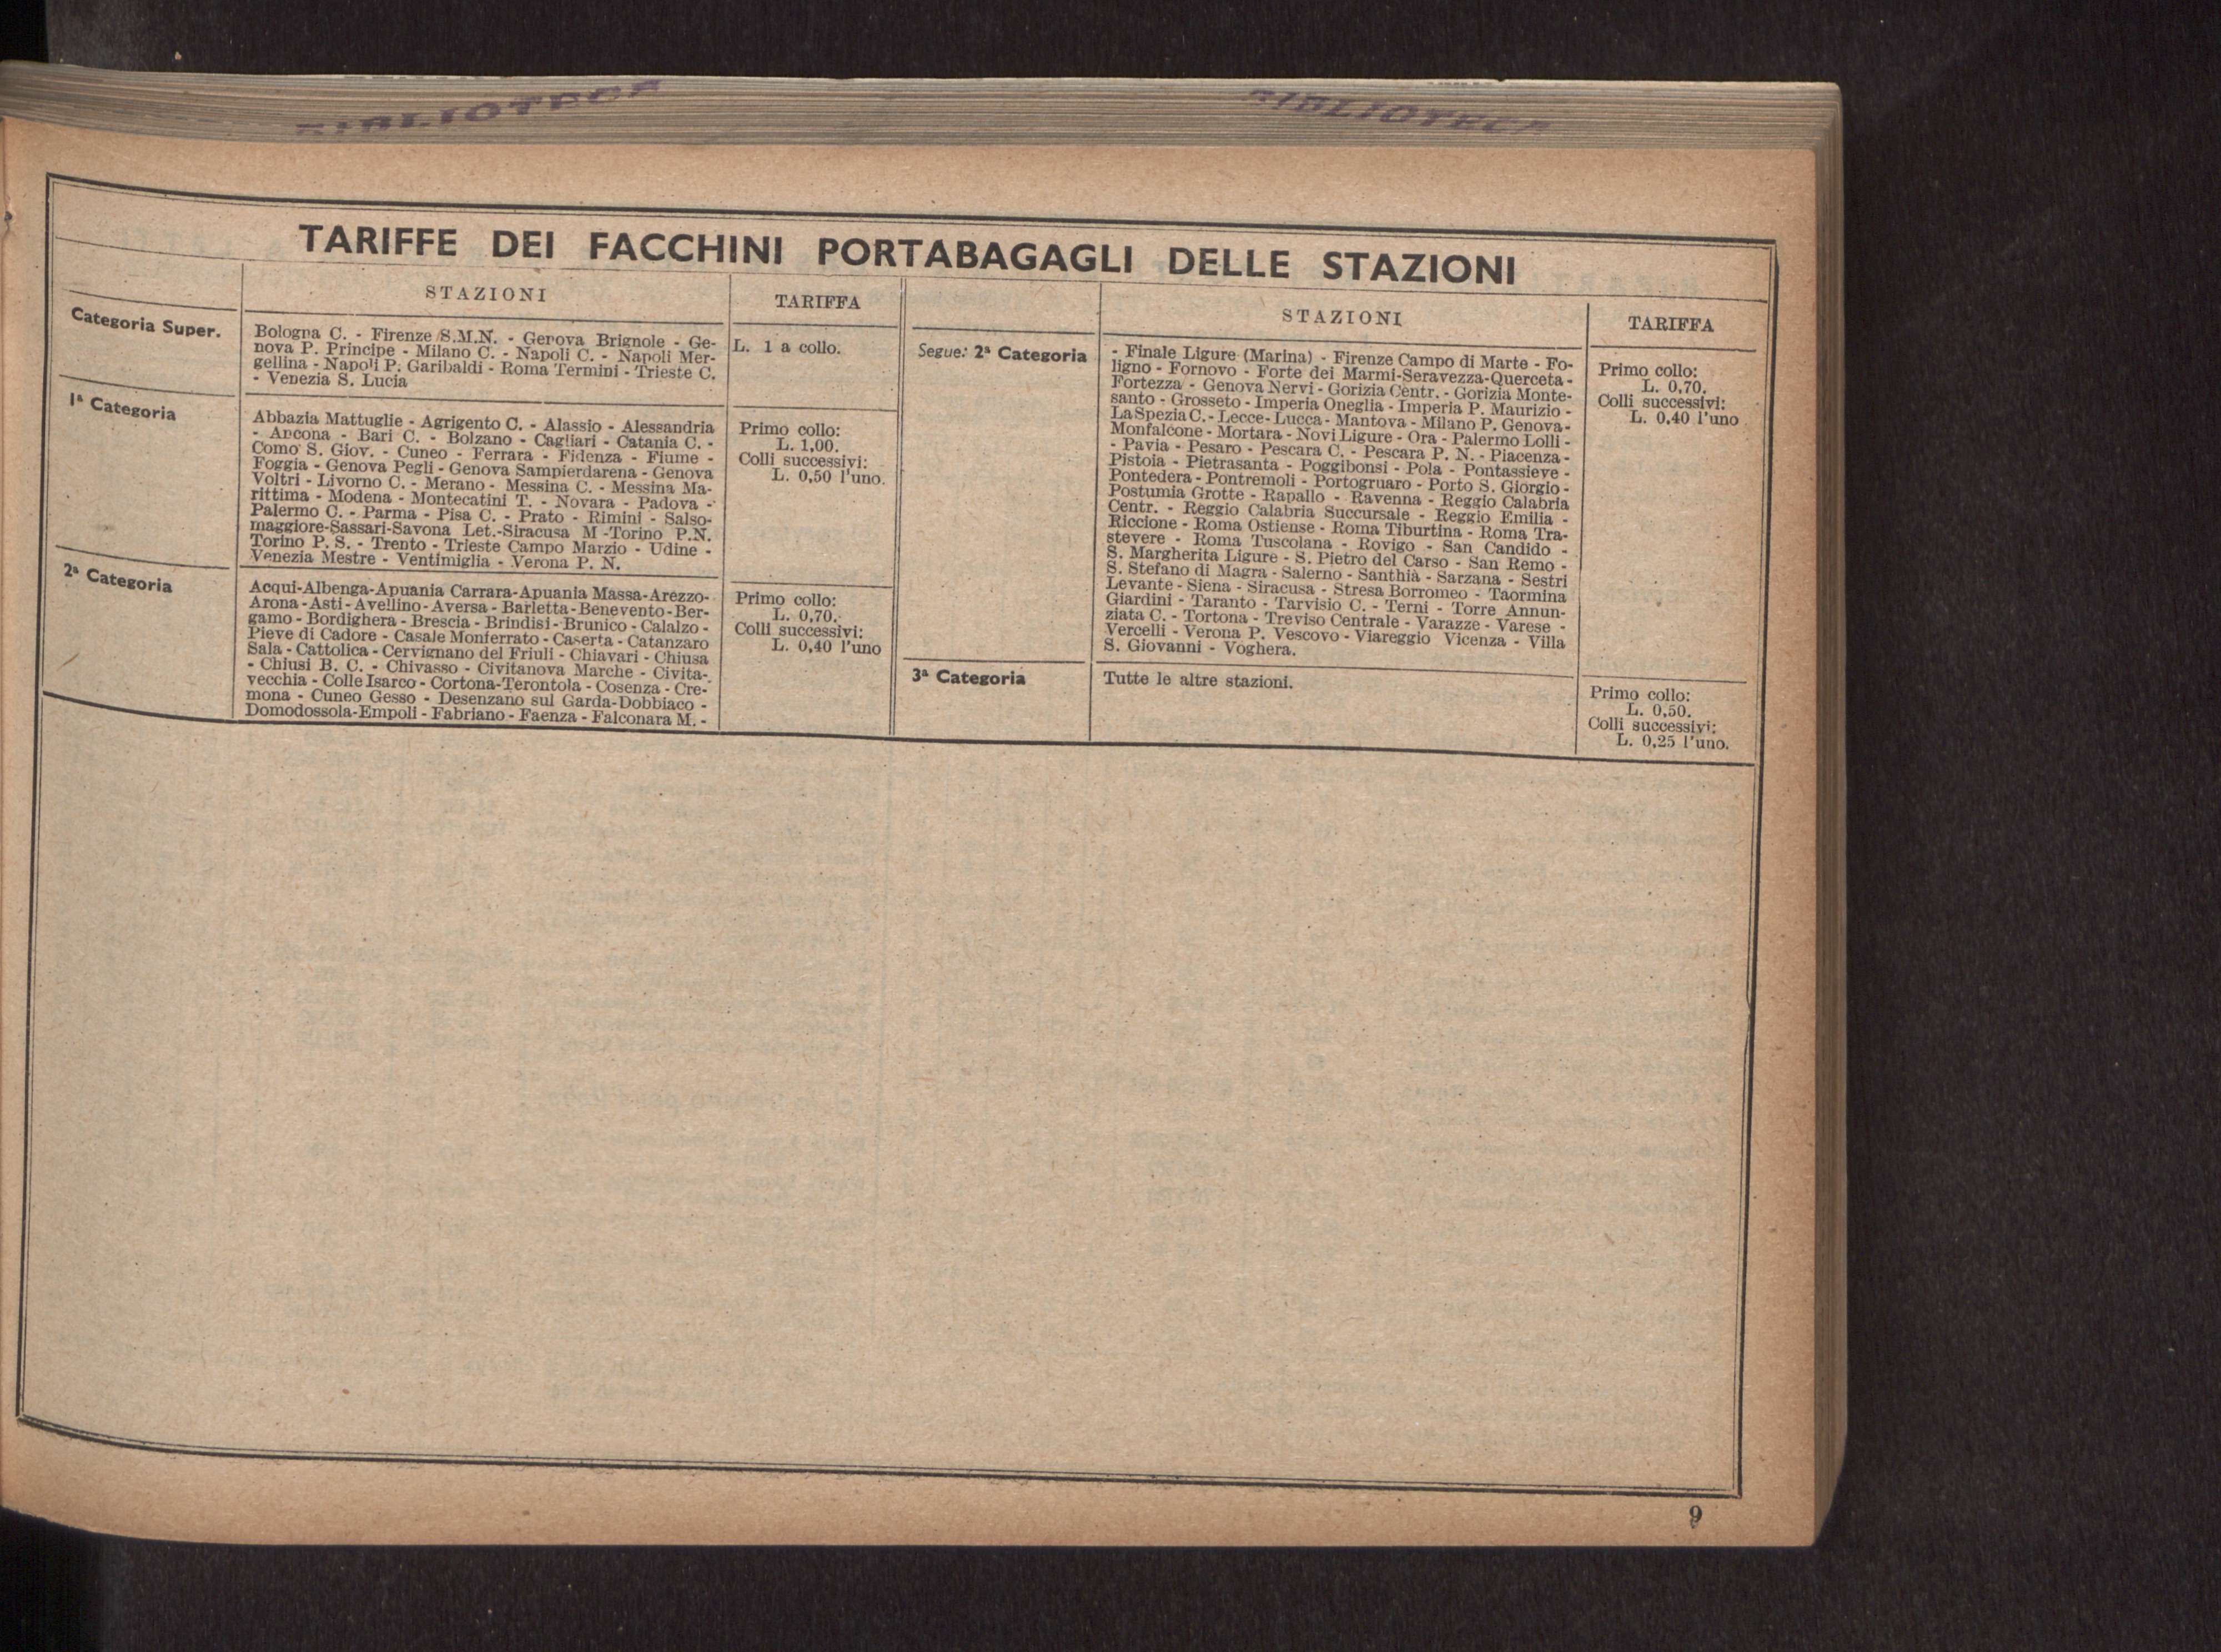 BIBLIOTECA
BIBLIOTECA
TARIFFE DEI FACCHINI PORTABAGAGLI DELLE STAZIONI
STAZIONI
TARIFFA
Categoria Super.
Bologna C. - Firenze S.M.N. - Genova Brignole - Ge-
nova P. Principe - Milano C. - Napoli C. - Napoli Mer-
gellina - Napoli P. Garibaldi - Roma Termini - Trieste C.
- Venezia S. Lucia
L. 1 a collo.
1ª Categoria
Abbazia Mattuglie - Agrigento C. - Alassio - Alessandria
- Ancona - Bari C. - Bolzano - Cagliari - Catania C. -
Como S. Giov. - Cuneo - Ferrara - Fidenza - Fiume -
Foggia - Genova Pegli - Genova Sampierdarena - Genova
Voltri - Livorno C. - Merano - Messina C. - Messina Ma-
rittima - Modena - Montecatini T. - Novara - Padova -
Palermo C. - Parma - Pisa C. - Prato - Rimini - Salso-
maggiore-Sassari-Savona Let.-Siracusa M -Torino P.N.
Torino P. S. - Trento - Trieste Campo Marzio - Udine -
Venezia Mestre - Ventimiglia - Verona P. N.
Primo collo:
L. 1,00.
Colli successivi:
L. 0,50 l'uno.
2ª Categoria
Acqui-Albenga-Apuania Carrara-Apuania Massa-Arezzo-
Arona - Asti - Avellino - Aversa - Barletta - Benevento - Ber-
gamo - Bordighera - Brescia - Brindisi - Brunico - Calalzo -
Pieve di Cadore - Casale Monferrato - Caserta - Catanzaro
Sala - Cattolica - Cervignano del Friuli - Chiavari - Chiusa
- Chiusi B. C. - Chivasso - Civitanova Marche - Civita-
vecchia - Colle Isarco - Cortona-Terontola - Cosenza - Cre-
mona - Cuneo Gesso - Desenzano sul Garda-Dobbiaco -
Domodossola-Empoli - Fabriano - Faenza - Falconara M. -
Primo collo:
L. 0,70.
Colli successivi:
L. 0,40 l'uno
STAZIONI
TARIFFA
Segue: 2ª Categoria
- Finale Ligure (Marina) - Firenze Campo di Marte - Fo-
ligno - Fornovo - Forte dei Marmi-Seravezza-Querceta -
Fortezza - Genova Nervi - Gorizia Centr. - Gorizia Monte-
santo - Grosseto - Imperia Oneglia - Imperia P. Maurizio -
La Spezia C. - Lecce - Lucca - Mantova - Milano P. Genova -
Monfalcone - Mortara - Novi Ligure - Ora - Palermo Lolli -
- Pavia - Pesaro - Pescara C. - Pescara P. N. - Piacenza -
Pistoia - Pietrasanta - Poggibonsi - Pola - Pontassieve -
Pontedera - Pontremoli - Portogruaro - Porto S. Giorgio -
Postumia Grotte - Rapallo - Ravenna - Reggio Calabria
Centr. - Reggio Calabria Succursale - Reggio Emilia -
Riccione - Roma Ostiense - Roma Tiburtina - Roma Tra-
stevere - Roma Tuscolana - Rovigo - San Candido -
S. Margherita Ligure - S. Pietro del Carso - San Remo -
S. Stefano di Magra - Salerno - Santhià - Sarzana - Sestri
Levante - Siena - Siracusa - Stresa Borromeo - Taormina
Giardini - Taranto - Tarvisio C. - Terni - Torre Annun-
ziata C. - Tortona - Treviso Centrale - Varazze - Varese -
Vercelli - Verona P. Vescovo - Viareggio Vicenza - Villa
S. Giovanni - Voghera.
Primo collo:
L. 0,70.
Colli successivi:
L. 0,40 l'uno
3ª Categoria
Tutte le altre stazioni.
Primo collo:
L. 0,50.
Colli successivi:
L. 0,25 l'uno.
9